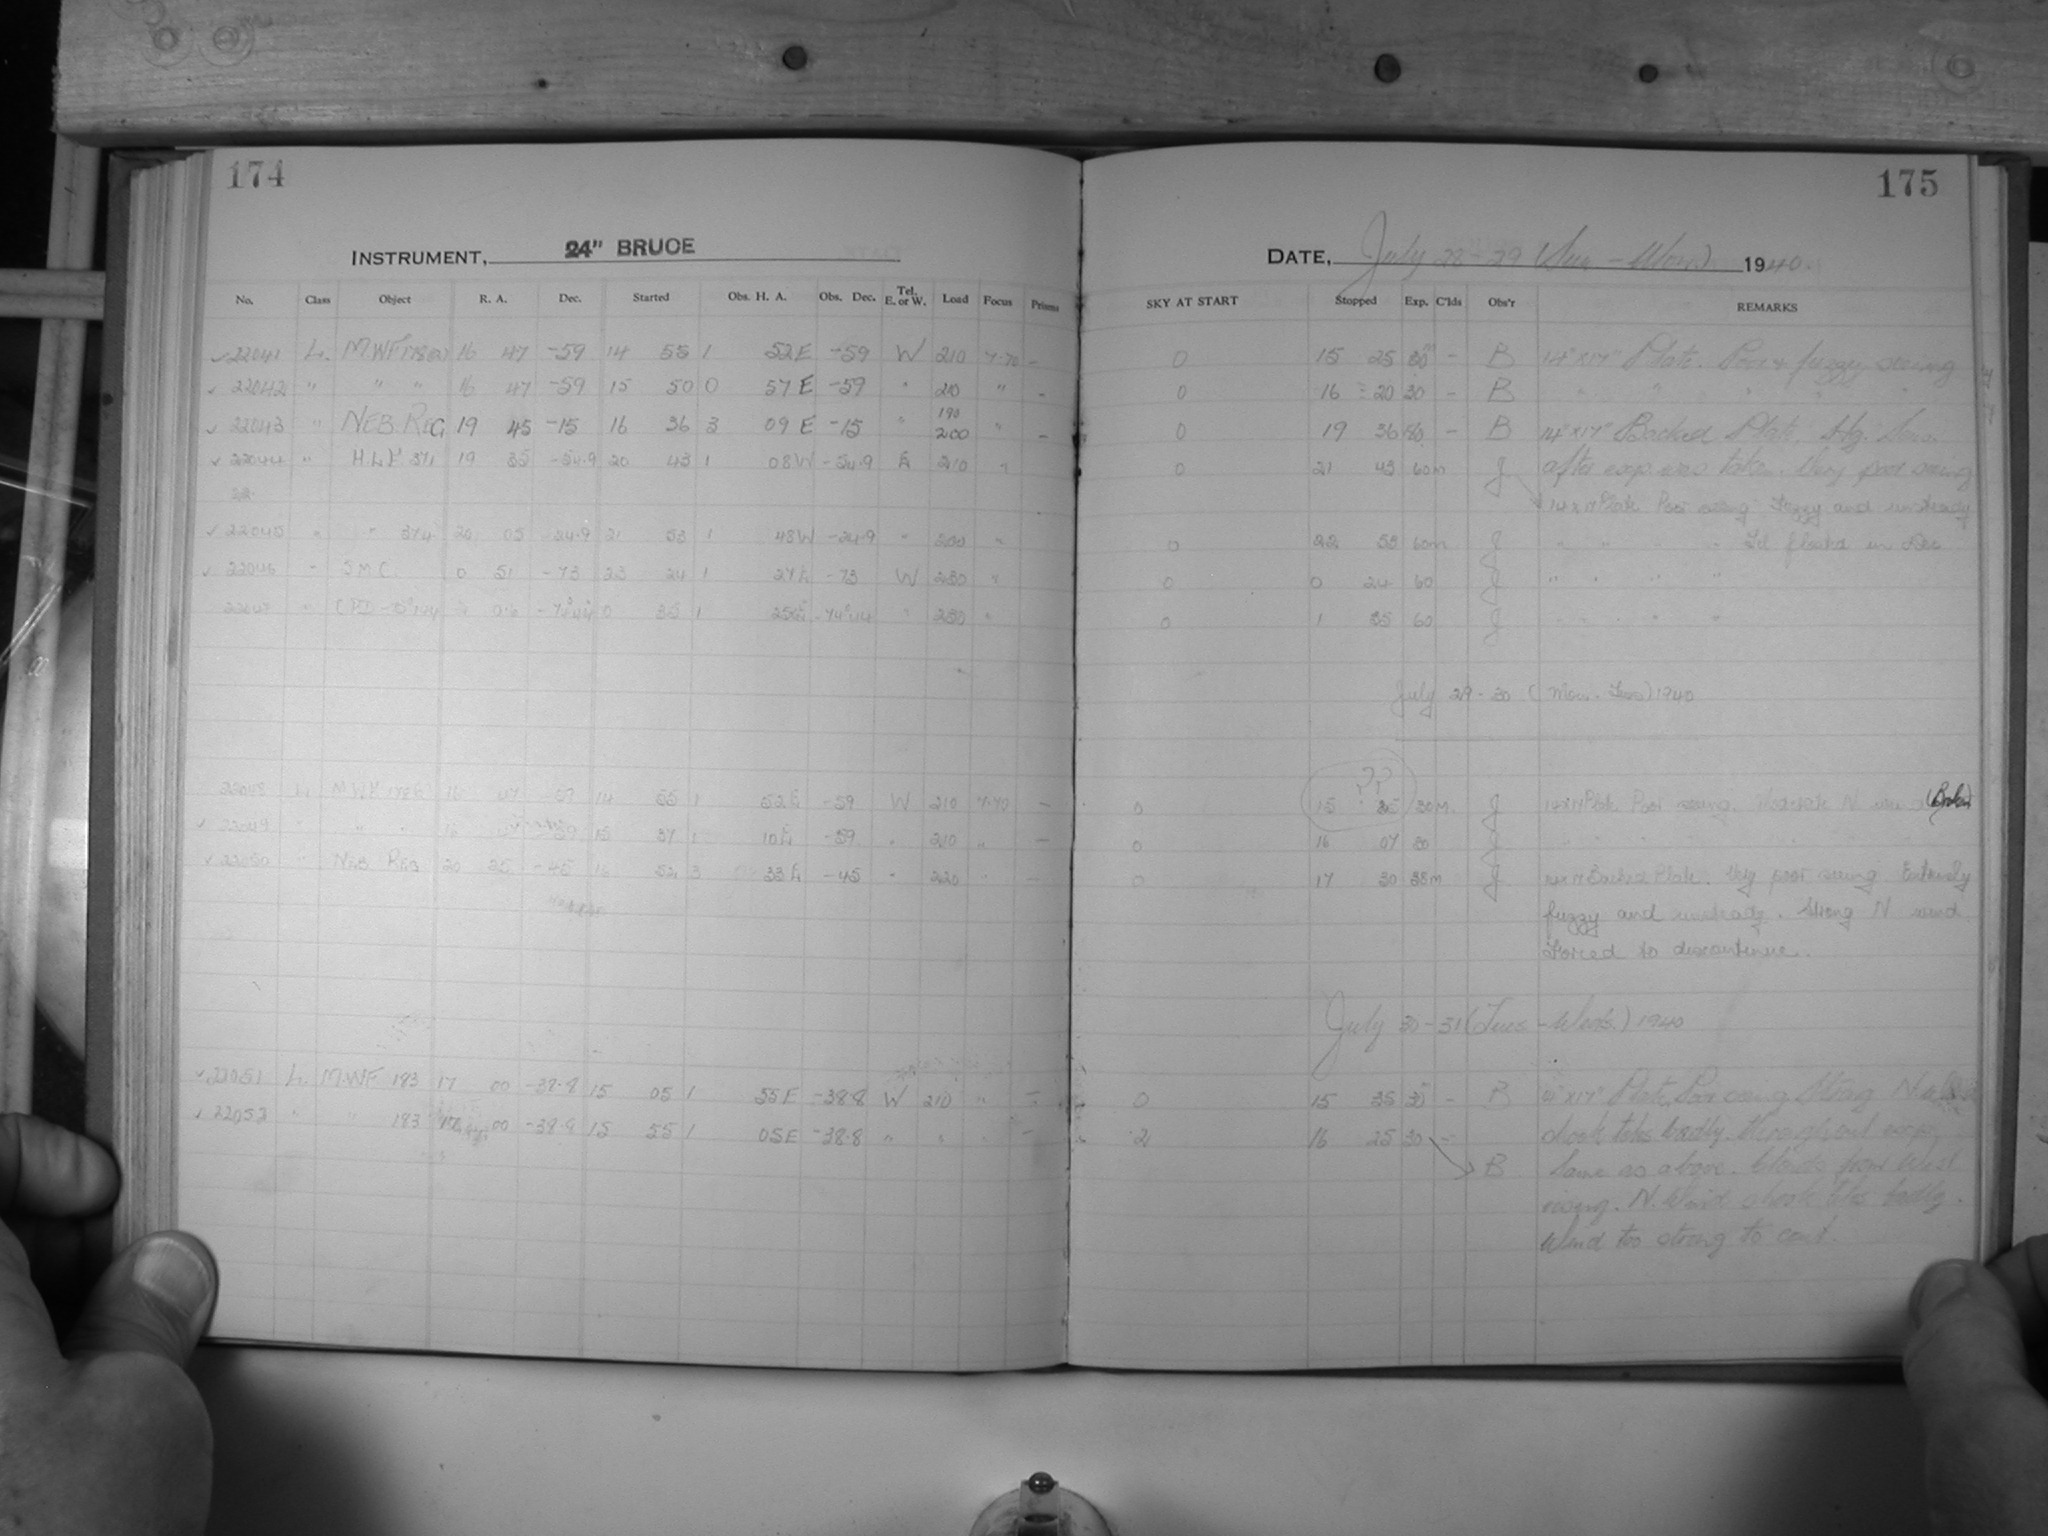 174
INSTRUMENT, 24" BRUCE
No. Class Object R. A. Dec. Started Obs. H. A. Obs. Dec. Tel. E. or W. Load Focus Prisms
✓ 22041 L. MWF 178 16 47 -59 14 55 1 52 E -59 W 210 7.70 -
✓ 22042 " " " 16 47 -59 15 50 0 57 E -59 " 210 " -
✓ 22043 " NEB. REG 19 45 -15 16 36 3 09 E -15 " 190 200 " -
✓ 22044 " 371 19 35 -24.9 20 43 1 08 W -24.9 E 210 "
22
✓ 22045 " " 374 20 05 -24.9 21 53 1 48 W -24.9 " 200 "
✓ 22046 " S.M.C. 0 51 -73 23 24 1 27 E -73 W 230 "
22047 " CPD 0 35 1 25 E -74°44 " 230 "
22048 L. MWF 178 16 47 -59 14 55 1 52 E -59 W 210 7.70 -
✓ 22049 " " 16 15 37 1 10 E -59 " 210 " -
✓ 22050 " NEB REG 20 25 -45 16 52 3 33 E -45 " 220 " -
✓ 22051 L. MWF 183 17 00 -38.8 15 05 1 55 E -38.8 W 210 " -
✓ 22052 " " 183 17 00 -38.8 15 55 1 05 E -38.8 " " " -
175
DATE, July 28-29 (Sun - Mon.) 1940.
SKY AT START Stopped Exp. C'lds Obs'r REMARKS
0 15 25 30m - B 14" x 17" Plate. Poor & fuzzy seeing
0 16 20 30 - B " " " " " "
0 19 36 180 - B 14" x 17" Backed Plate. Hg. Sens.
0 21 43 60m J after exp. was taken. Very poor seeing
14 x 17 Plate Poor seeing Fuzzy and unsteady
0 22 53 60m J " " " " Tel. in Dec
0 0 24 60 J " " " "
0 1 35 60 J " " " "
July 29-30 (Mon. - Tues) 1940
??
0 15 25 30m. J 14x17 Plate Poor seeing. Moderate N. wind (Broken)
0 16 07 30 J " " " "
0 17 30 38m J 14 x 17 Backed Plate. Very poor seeing Extremely
fuzzy and unsteady. Strong N wind
Forced to discontinue.
July 30-31 (Tues - Weds.) 1940
0 15 35 30m - B 14" x 17" Plate, Poor seeing Strong N.
2 16 25 30 - shook tube badly throughout exp.
B Same as above. Clouds from West
rising. N. Wind shook tube badly.
Wind too strong to cont.